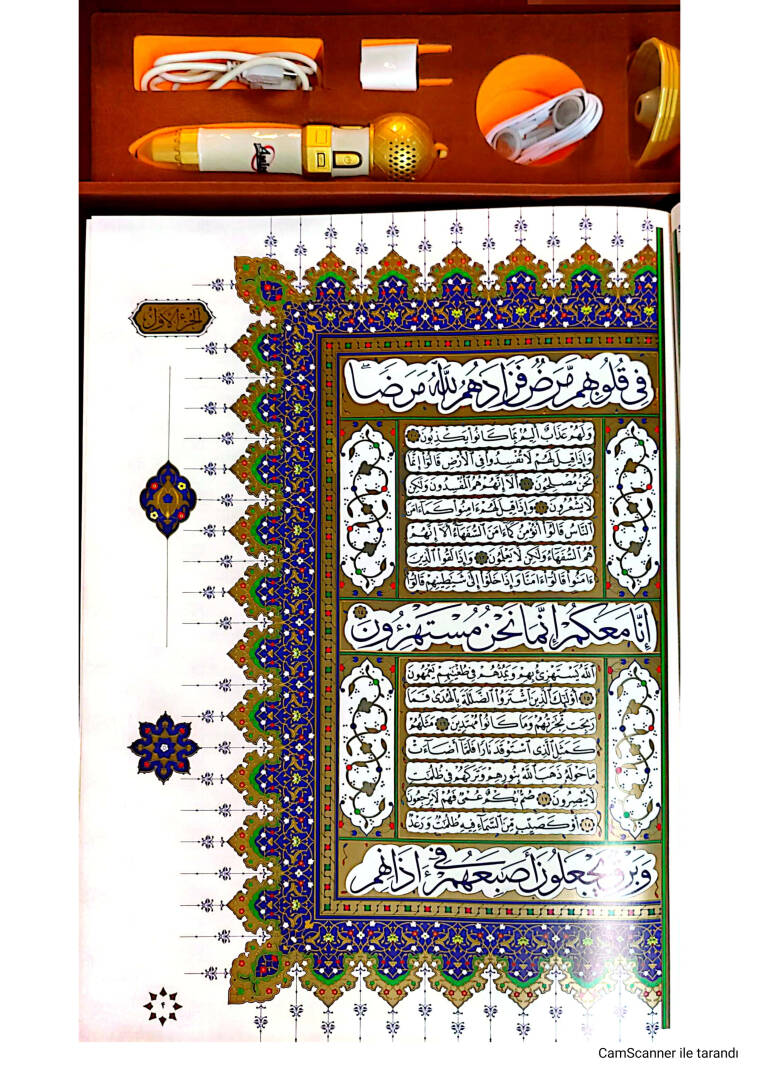 الجزء الأول
فِى قُلُوبِهِم مَّرَضٌ فَزَادَهُمُ ٱللَّهُ مَرَضًا
وَلَهُمْ عَذَابٌ أَلِيمٌ بِمَا كَانُوا يَكْذِبُونَ ١٠
وَإِذَا قِيلَ لَهُمْ لَا تُفْسِدُوا فِى ٱلْأَرْضِ قَالُوا إِنَّمَا
نَحْنُ مُصْلِحُونَ ١١ أَلَا إِنَّهُمْ هُمُ ٱلْمُفْسِدُونَ وَلَٰكِن
لَّا يَشْعُرُونَ ١٢ وَإِذَا قِيلَ لَهُمْ ءَامِنُوا كَمَا ءَامَنَ
ٱلنَّاسُ قَالُوا أَنُؤْمِنُ كَمَا ءَامَنَ ٱلسُّفَهَاءُ أَلَا إِنَّهُمْ
هُمُ ٱلسُّفَهَاءُ وَلَٰكِن لَّا يَعْلَمُونَ ١٣ وَإِذَا لَقُوا ٱلَّذِينَ
ءَامَنُوا قَالُوا ءَامَنَّا وَإِذَا خَلَوْا إِلَىٰ شَيَٰطِينِهِمْ قَالُوا
إِنَّا مَعَكُمْ إِنَّمَا نَحْنُ مُسْتَهْزِءُونَ ١٤
ٱللَّهُ يَسْتَهْزِئُ بِهِمْ وَيَمُدُّهُمْ فِى طُغْيَٰنِهِمْ يَعْمَهُونَ
١٥ أُولَٰئِكَ ٱلَّذِينَ ٱشْتَرَوُا ٱلضَّلَٰلَةَ بِٱلْهُدَىٰ فَمَا
رَبِحَت تِّجَٰرَتُهُمْ وَمَا كَانُوا مُهْتَدِينَ ١٦ مَثَلُهُمْ
كَمَثَلِ ٱلَّذِى ٱسْتَوْقَدَ نَارًا فَلَمَّا أَضَاءَتْ
مَا حَوْلَهُ ذَهَبَ ٱللَّهُ بِنُورِهِمْ وَتَرَكَهُمْ فِى ظُلُمَٰتٍ
لَّا يُبْصِرُونَ ١٧ صُمٌّ بُكْمٌ عُمْىٌ فَهُمْ لَا يَرْجِعُونَ
١٨ أَوْ كَصَيِّبٍ مِّنَ ٱلسَّمَاءِ فِيهِ ظُلُمَٰتٌ وَرَعْدٌ
وَبَرْقٌ يَجْعَلُونَ أَصَٰبِعَهُمْ فِى ءَاذَانِهِم
CamScanner ile tarandı